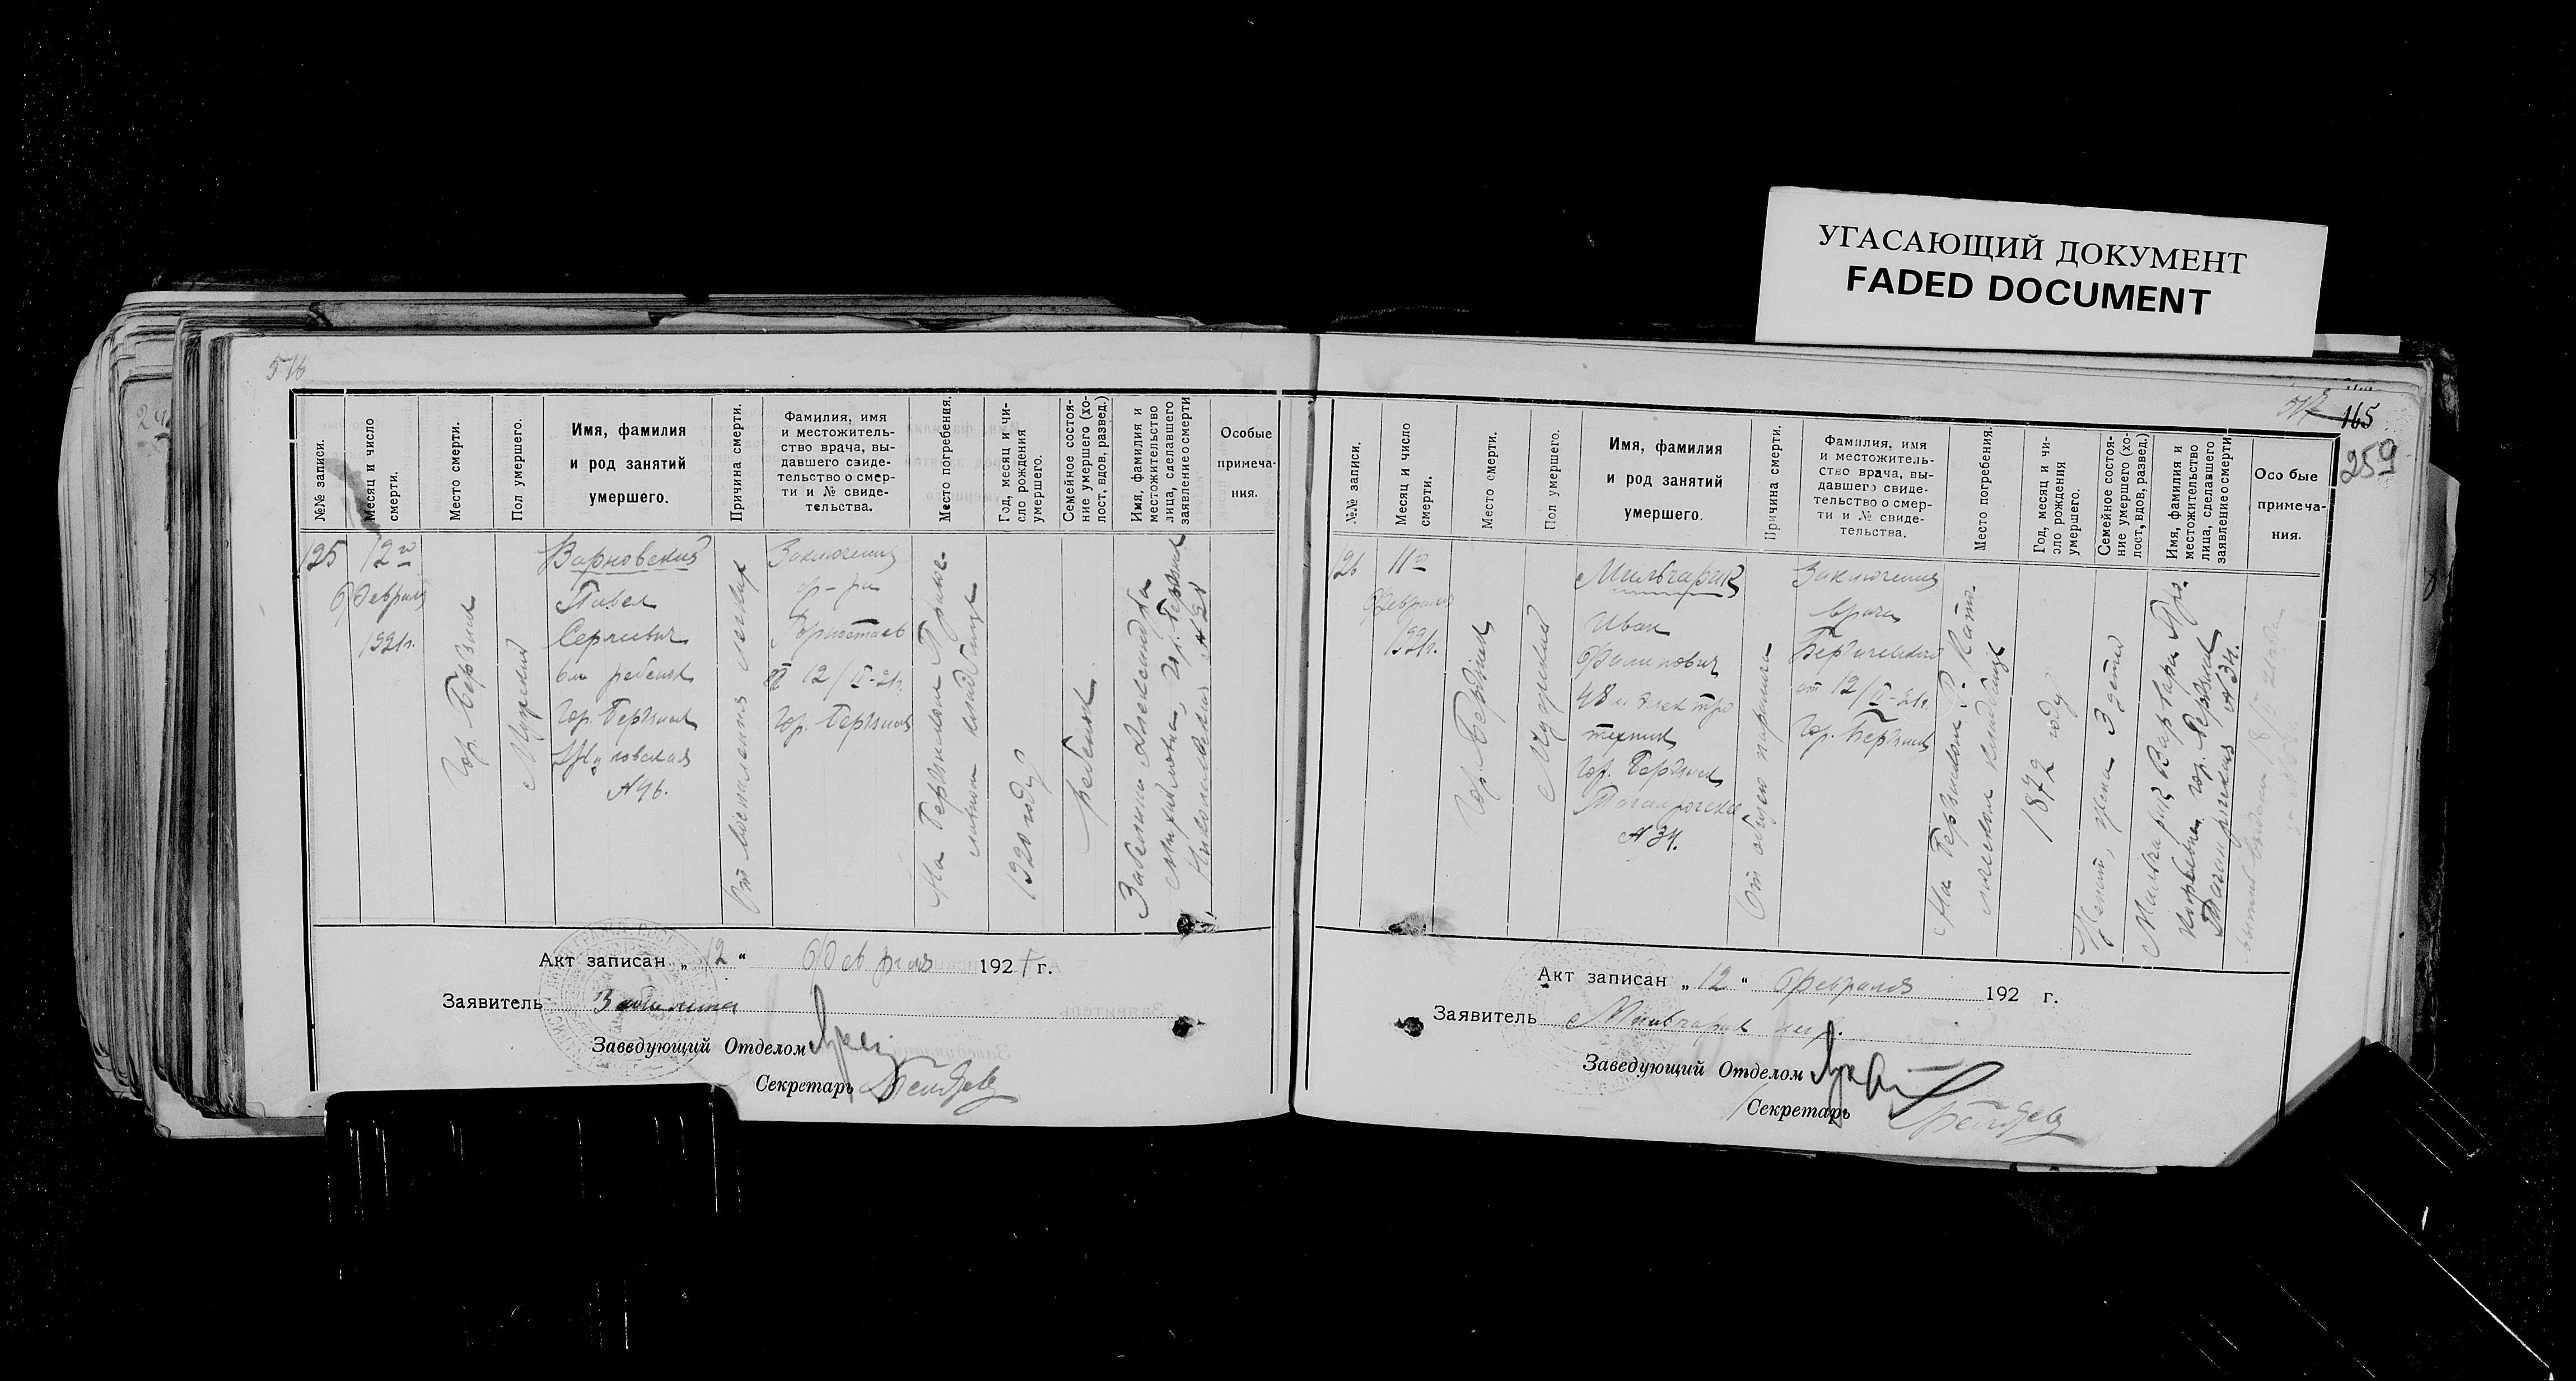 УГАСАЮЩИЙ ДОКУМЕНТ
FADED DOCUMENT
576
№№ записи.
Месяц и число
смерти.
Место смерти.
Пол умершего.
Имя, фамилия
и род занятий
умершего.
Причина смерти.
Фамилия, имя
и местожитель-
ство врача, вы-
давшего свиде-
тельство о смер-
ти и № свиде-
тельства.
Место погребения.
Год, месяц и чи-
сло рождения
умершего.
Семейное состоя-
ние умершего (хо-
лост, вдов, развед.)
Имя, фамилия и
местожительство
лица, сделавшего
заявление о смерти
Особые
примеча-
ния.
125
12го
Февраля
1921г.
Гор. Бердянск
Мужской
Варновский
Павел
Сергиевич
6м ребенок
Гор. Бердянск
№46.
От воспаления легких
Заключение
д-ра
Горностаев
12/II-21г.
Гор. Бердянск
На Бердянском
кладбище
1920 году
ребенок
Забелина Александра
Михайловна, Гор. Бердянск
Акт записан „12“ Февраля 1921 г.
Заявитель Забелина
Заведующий Отделом
Секретарь
165
259
№№ записи.
Месяц и число
смерти.
Место смерти.
Пол умершего.
Имя, фамилия
и род занятий
умершего.
Причина смерти.
Фамилия, имя
и местожитель-
ство врача, вы-
давшего свиде-
тельство о смер-
ти и № свиде-
тельства.
Место погребения.
Год, месяц и чи-
сло рождения
умершего.
Семейное состоя-
ние умершего (хо-
лост, вдов, развед.)
Имя, фамилия и
местожительство
лица, сделавшего
заявление о смерти
Особые
примеча-
ния.
126
11го
Февраля
1921г.
Гор. Бердянск
Мужской
Мильчарик
Иван
Филипович
48 л. электро
техник
Гор. Бердянск
Таганрогская
№34.
От общего паралича
Заключение
врача
от 12/II-21г.
Гор. Бердянск
На Бердянском Р. Като-
лическом кладбище
1872 году
Женат, жена 3 детей
Мильчарик Варвара
гор. Бердянск
Таганрогская №34.
Акт записан „12“ Февраля 192 г.
Заявитель Мильчарик
Заведующий Отделом
Секретарь